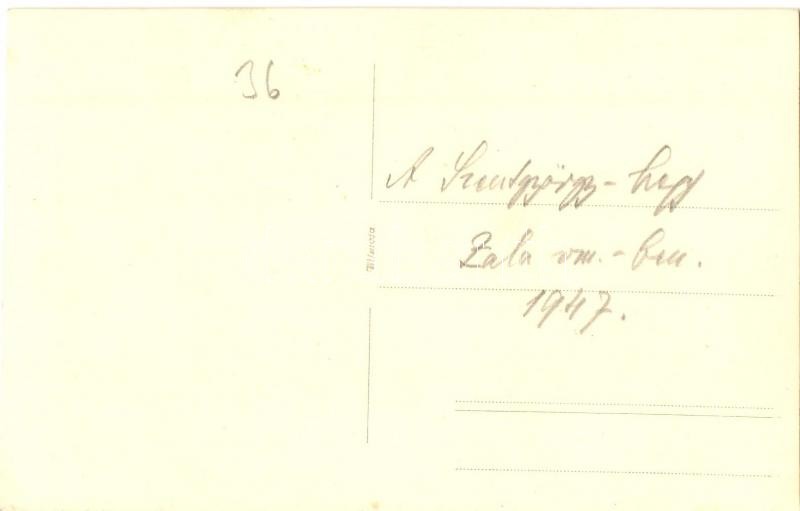 36
A Szentgyörgy-hegy
Zala vm.-ben.
1947.